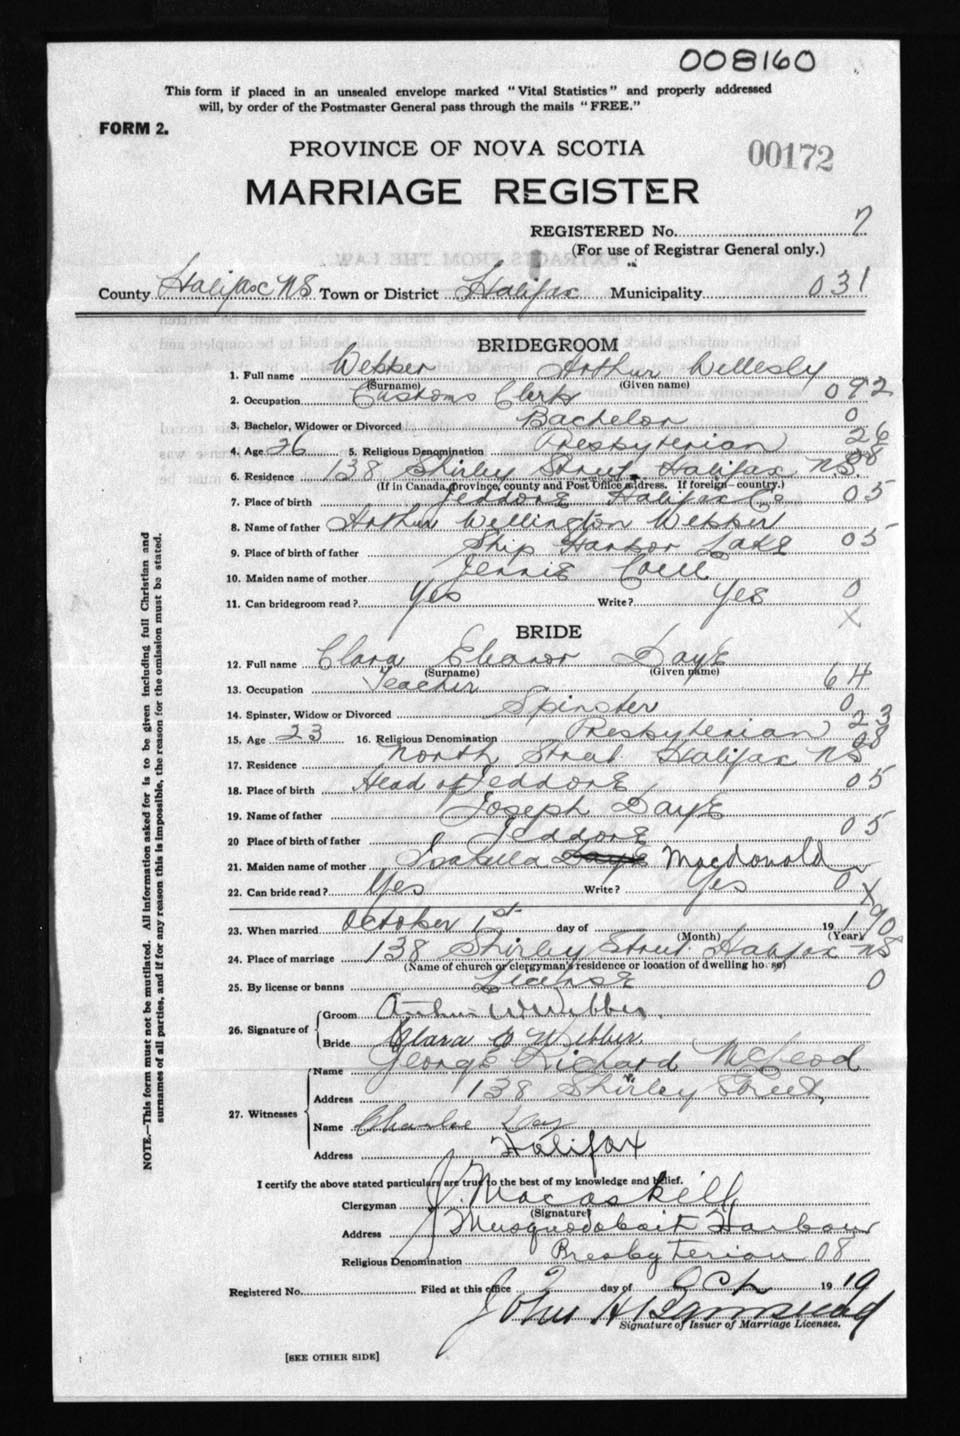 008160
This form if placed in an unsealed envelope marked "Vital Statistics" and properly addressed
will, by order of the Postmaster General pass through the mails "FREE."
FORM 2.
PROVINCE OF NOVA SCOTIA
00172
MARRIAGE REGISTER
REGISTERED No. 7
(For use of Registrar General only.)
County Halifax NS Town or District Halifax Municipality 031
BRIDEGROOM
1. Full name Webber Arthur Wellesly
(Surname) (Given name)
2. Occupation Customs Clerk 092
3. Bachelor, Widower or Divorced Bachelor 0
4. Age 26 5. Religious Denomination Presbyterian 26
08
6. Residence 138 Shirley Street Halifax NS
(If in Canada, province, county and Post Office address. If foreign—country.)
7. Place of birth Jeddore Halifax Co 05
8. Name of father Arthur Wellington Webber
9. Place of birth of father Ship Harbor Lake 05
10. Maiden name of mother Jennie
11. Can bridegroom read? Yes Write? Yes 0
X
BRIDE
12. Full name Clara Eleanor Daye
(Surname) (Given name)
13. Occupation Teacher 64
14. Spinster, Widow or Divorced Spinster 0
15. Age 23 16. Religious Denomination Presbyterian 23
08
17. Residence North Street Halifax NS
18. Place of birth Head of Jeddore 05
19. Name of father Joseph Daye
20 Place of birth of father Jeddore 05
21. Maiden name of mother Isabella Daye Macdonald
22. Can bride read? Yes Write? Yes 0 X
23. When married October 1st day of 19 19 0
(Month) (Year)
24. Place of marriage 138 Shirley Street Halifax NS
(Name of church or clergyman's residence or location of dwelling house)
25. By license or banns License 0
26. Signature of
Groom Arthur W Webber.
Bride Clara D Webber.
27. Witnesses
Name George Richard McLeod
Address 138 Shirley Street,
Name Charles Day
Address Halifax
I certify the above stated particulars are true to the best of my knowledge and belief.
Clergyman J. Macaskill
(Signature)
Address Musquodoboit Harbour
Religious Denomination Presbyterian 08
Registered No. Filed at this office 2 day of Oct 19 19
John H
Signature of Issuer of Marriage Licenses.
[SEE OTHER SIDE]
NOTE.—This form must not be mutilated. All information asked for is to be given including full Christian and
surnames of all parties, and if for any reason this is impossible, the reason for the omission must be stated.